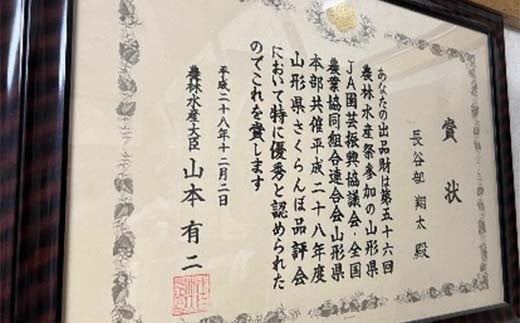 賞状
長谷部 翔太 殿
あなたの出品財は第五十六回
農林水産祭参加の山形県
JA園芸振興協議会・全国
農業協同組合連合会山形県
本部共催平成二十八年度
山形県さくらんぼ品評会
において特に優秀と認められた
のでこれを賞します
平成二十八年十二月二日
農林水産大臣 山本 有二